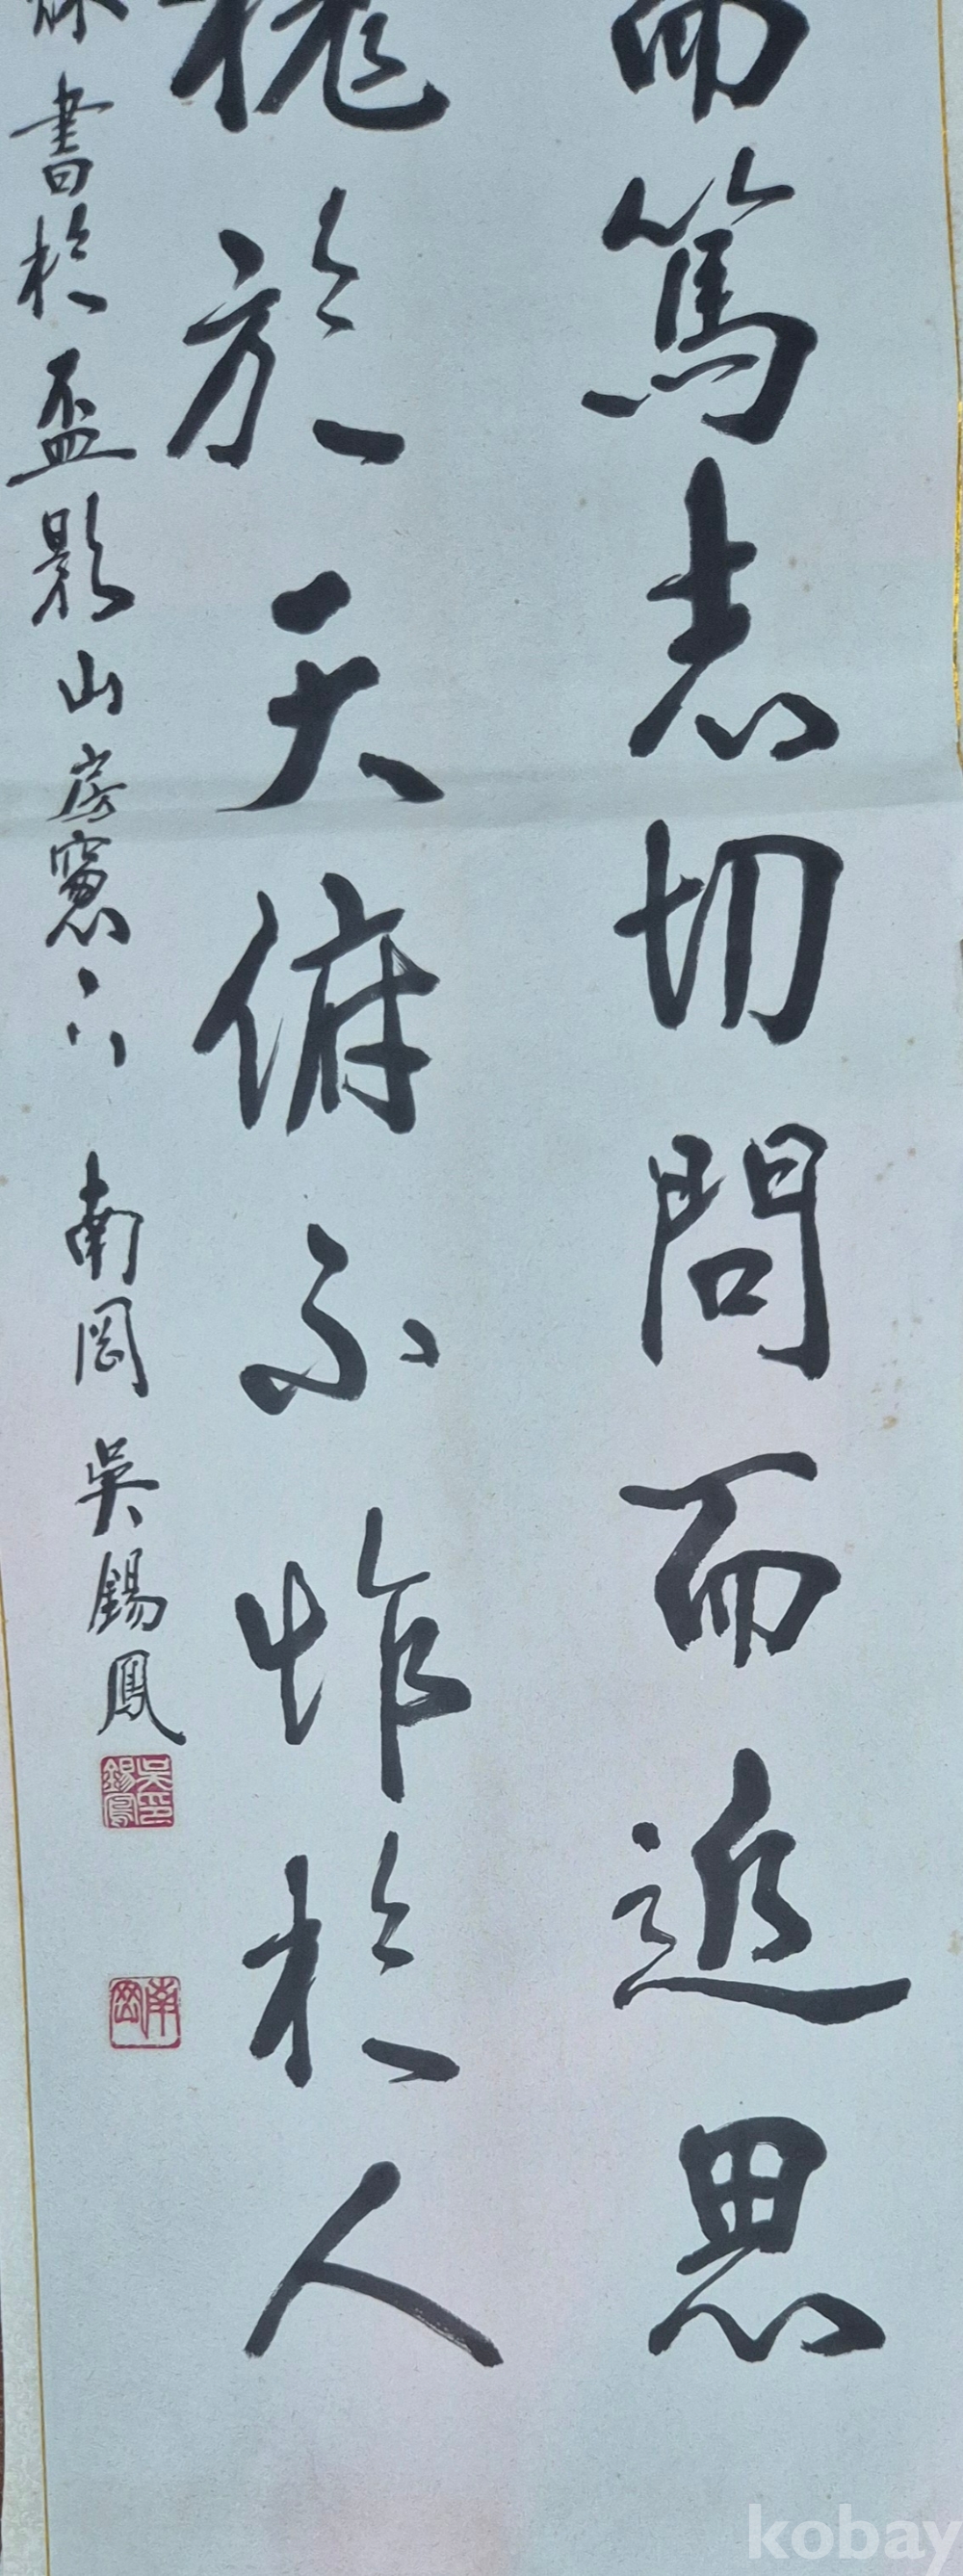 而篤志切問而近思
愧於天俯不怍於人
書於盃影山房窓下 南岡 吳錫鳳
吳錫鳳印
南岡
kobay